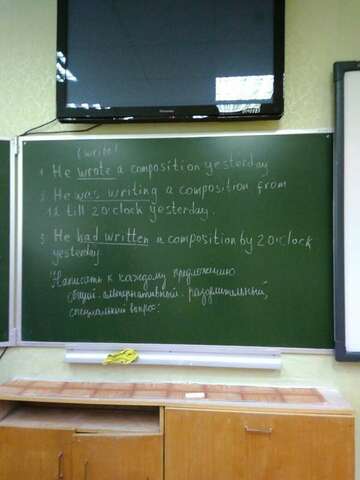 (write)
1. He wrote a composition yesterday
2. He was writing a composition from
12 till 2 o'clock yesterday.
3. He had written a composition by 2 o'clock
yesterday.
Написать к каждому предложению
общий. альтернативный. разделительный,
специальный вопрос: